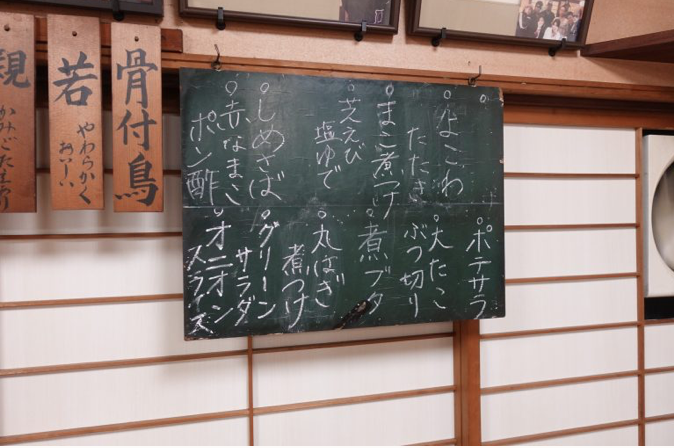 よこわ
たたき
まこ煮つけ
芝えび
塩ゆで
しめさば
赤なまこ
ポン酢
ポテサラ
大たこ
ぶつ切り
煮ブタ
丸はぎ
煮つけ
グリーン
サラダ
オニオン
スライス
骨付鳥
若
やわらかく
おいしい
親